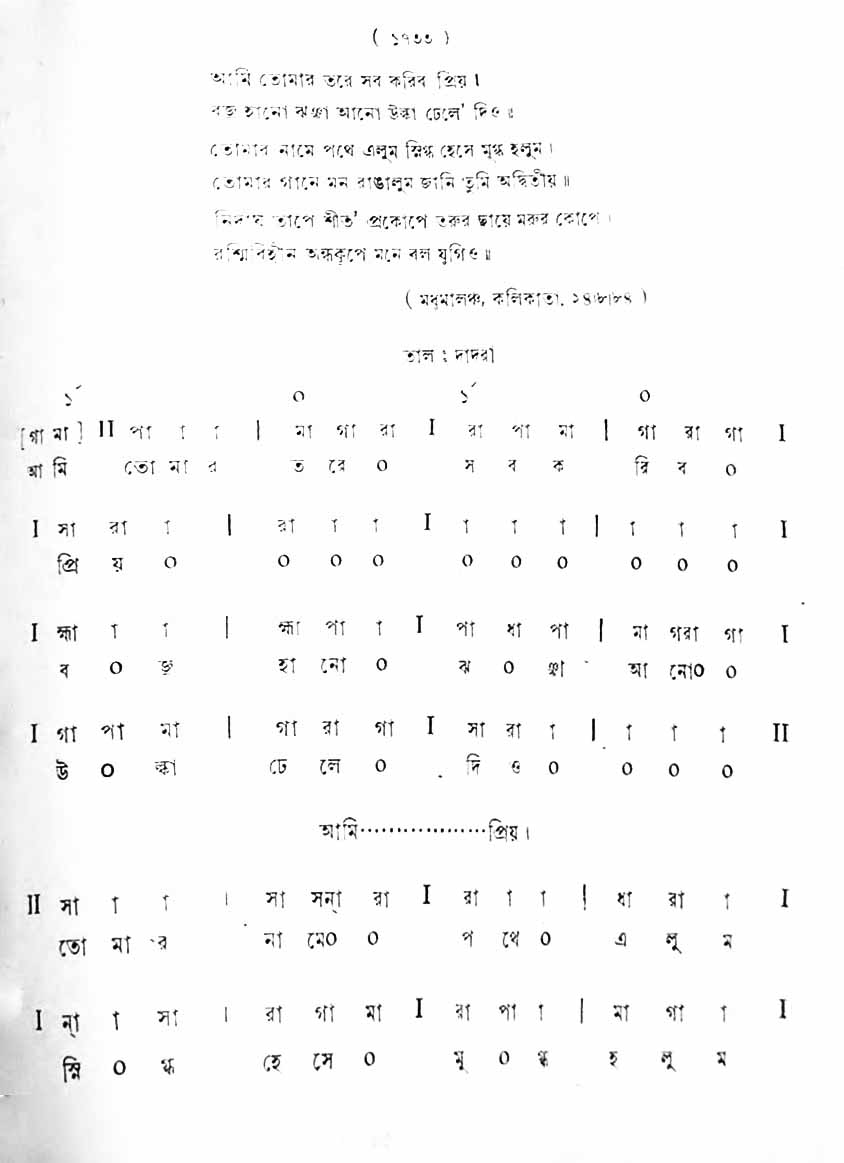 ( ১৭৩৩ )
আমি তোমার তরে সব করিব প্রিয় ।
বজ্র হানো ঝঞ্ঝা আনো উল্কা ঢেলে' দিও ॥
তোমার নামে পথে এলুম স্নিগ্ধ হেসে মুগ্ধ হলুম ।
তোমার গানে মন রাঙালুম জানি তুমি অদ্বিতীয় ॥
নিদাঘ তাপে শীত' প্রকোপে তরুর ছায়ে মরুর কোপে ।
রশ্মিবিহীন অন্ধকূপে মনে বল যুগিও ॥
( মধুমালঞ্চ, কলিকাতা, ২৪।৮।৮৪ )
তাল : দাদরা
১´ ০ ১´ ০
[গা মা] II পা া া | মা গা রা I রা পা মা | গা রা গা I
আ মি তো মা র ত রে ০ স ব ক রি ব ০
I সা রা া | রা া া I া া া | া া া I
প্রি য় ০ ০ ০ ০ ০ ০ ০ ০ ০ ০
I হ্মা া া | হ্মা পা া I পা ধা পা | মা গরা গা I
ব ০ জ্র হা নো ০ ঝ ০ ঞ্ঝা আ নো০ ০
I গা পা মা | গা রা গা I সা রা া | া া া II
উ ০ ল্কা ঢে লে ০ দি ও ০ ০ ০ ০
আমি··················প্রিয় ।
II সা া া । সা সন্া রা I রা া া | ধা রা া I
তো মা র না মে০ ০ প থে ০ এ লু ম
I ন্া া সা । রা গা মা I রা পা া | মা গা া I
স্নি ০ গ্ধ হে সে ০ মু ০ গ্ধ হ লু ম